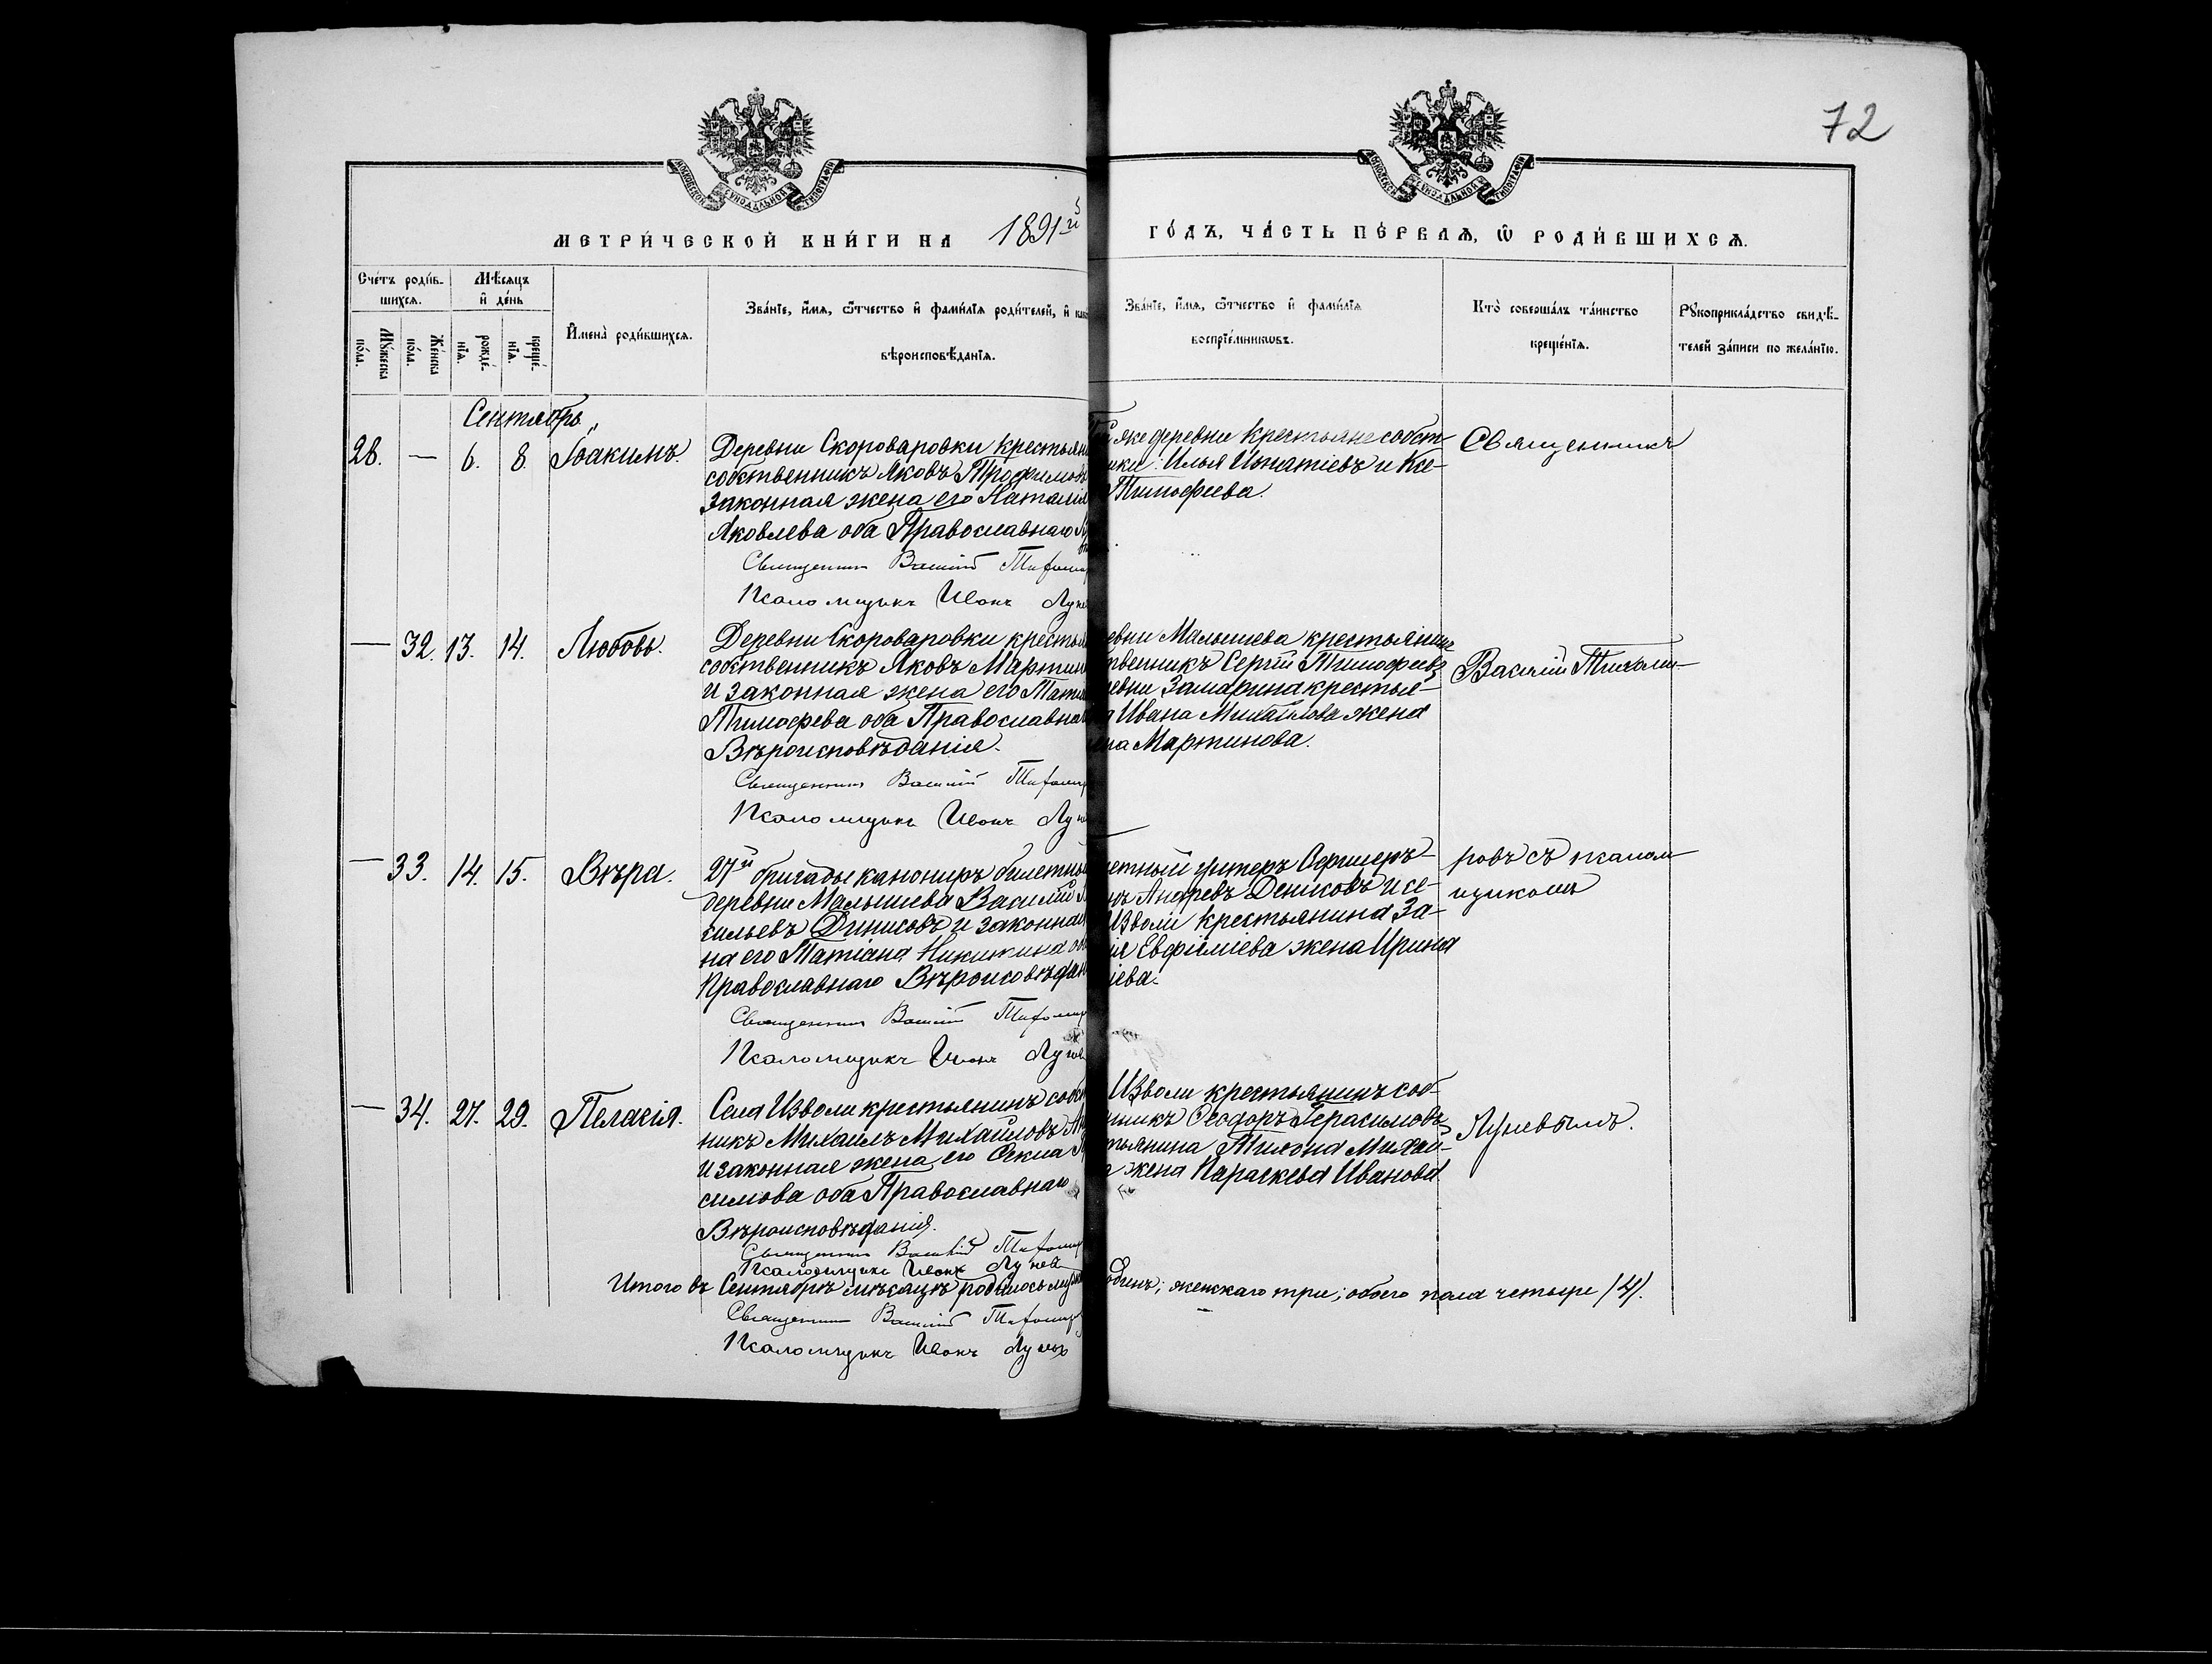 72
МОСКОВСКОЙ СѴНОДАЛЬНОЙ ТИПОГРАФІИ
МОСКОВСКОЙ СѴНОДАЛЬНОЙ ТИПОГРАФІИ
МЕТРИ́ЧЕСКОЙ КНИ́ГИ НА 1891й ГО́ДЪ, ЧА́СТЬ ПЕ́РВАѦ, Ѡ҆ РОДИ́ВШИХСѦ.
Сче́тъ роди́в-
шихсѧ.
Мѣ́сѧцъ
и҆ де́нь
Мꙋ́жеска
по́ла.
Же́нска
по́ла.
рожде́-
нїѧ.
креще́-
нїѧ.
И҆мена̀ роди́вшихсѧ.
Зва́нїе, и҆́мѧ, ѻ҆́тчество и҆ фами́лїѧ роди́телей, и҆
вѣроисповѣ́данїѧ.
Зва́нїе, и҆́мѧ, ѻ҆́тчество и҆ фами́лїѧ
воспрїе́мникѡвъ.
Кто̀ соверша́лъ та́инство
креще́нїѧ.
Рꙋкоприкла́дство свидѣ́-
телей за́писи по жела́нїю.
Сентябрь
28. — 6. 8. Іоакимъ.
Деревни Скороваровки крестьян
собственникъ Яковъ Трофимовъ
законная жена его Наталія
Яковлева оба Православнаго
Священник Василій Тихомир
Псаломщикъ Иванъ Луне
же деревни крестьяне собст-
ики: Илья Игнатіевъ и Ксе-
Тимофеева.
Священникъ
— 32. 13. 14. Любовь.
Деревни Скороваровки кресть
собственникъ Яковъ Мартин
и законная жена его Тать
Тимофева оба Православна
Вѣроисповѣданія.
Священник Василій Тихомир
Псаломщикъ Иванъ Лун
евни Малышева крестьянинъ
твенникъ Сергій Тимофеевъ
евни Замарина крестья-
Ивана Михайлова жена
на Мартинова.
Василій Тихоми-
— 33. 14. 15. Вѣра.
27й бригады канониръ билетны
деревни Малышева Василій
сильевъ Динисовъ и законная
на его Татіана Никитина
Православнаго Вѣроисовѣдан
Священник Василій Тихомир
Псаломщикъ Иванъ Луне
етный унтеръ Офицеръ
Андревъ Денисовъ и се-
Изволи крестьянина За-
Евфиміева жена Ирина
іева.
ровъ съ псалом-
щикомъ
— 34. 27. 29. Пелагія.
Села Изволи крестьянинъ собст
никъ Михаилъ Михайловъ
и законная жена его Ѳекла
симова оба Православнаго
Вѣроисповѣданія.
Священник Василій Тихомир
Псаломщикъ Иванъ Луне
Изволи крестьянинъ соб-
нникъ Ѳеодоръ Герасимовъ
тьянина Тихона Михай-
жена Параскева Иванова
Луневымъ.
Итого въ Сентябрѣ мѣсяцѣ родилось муж
одинъ; женскаго три; обоего пола четыре /4/.
Священник Василій Тихомир
Псаломщикъ Иванъ Лунев